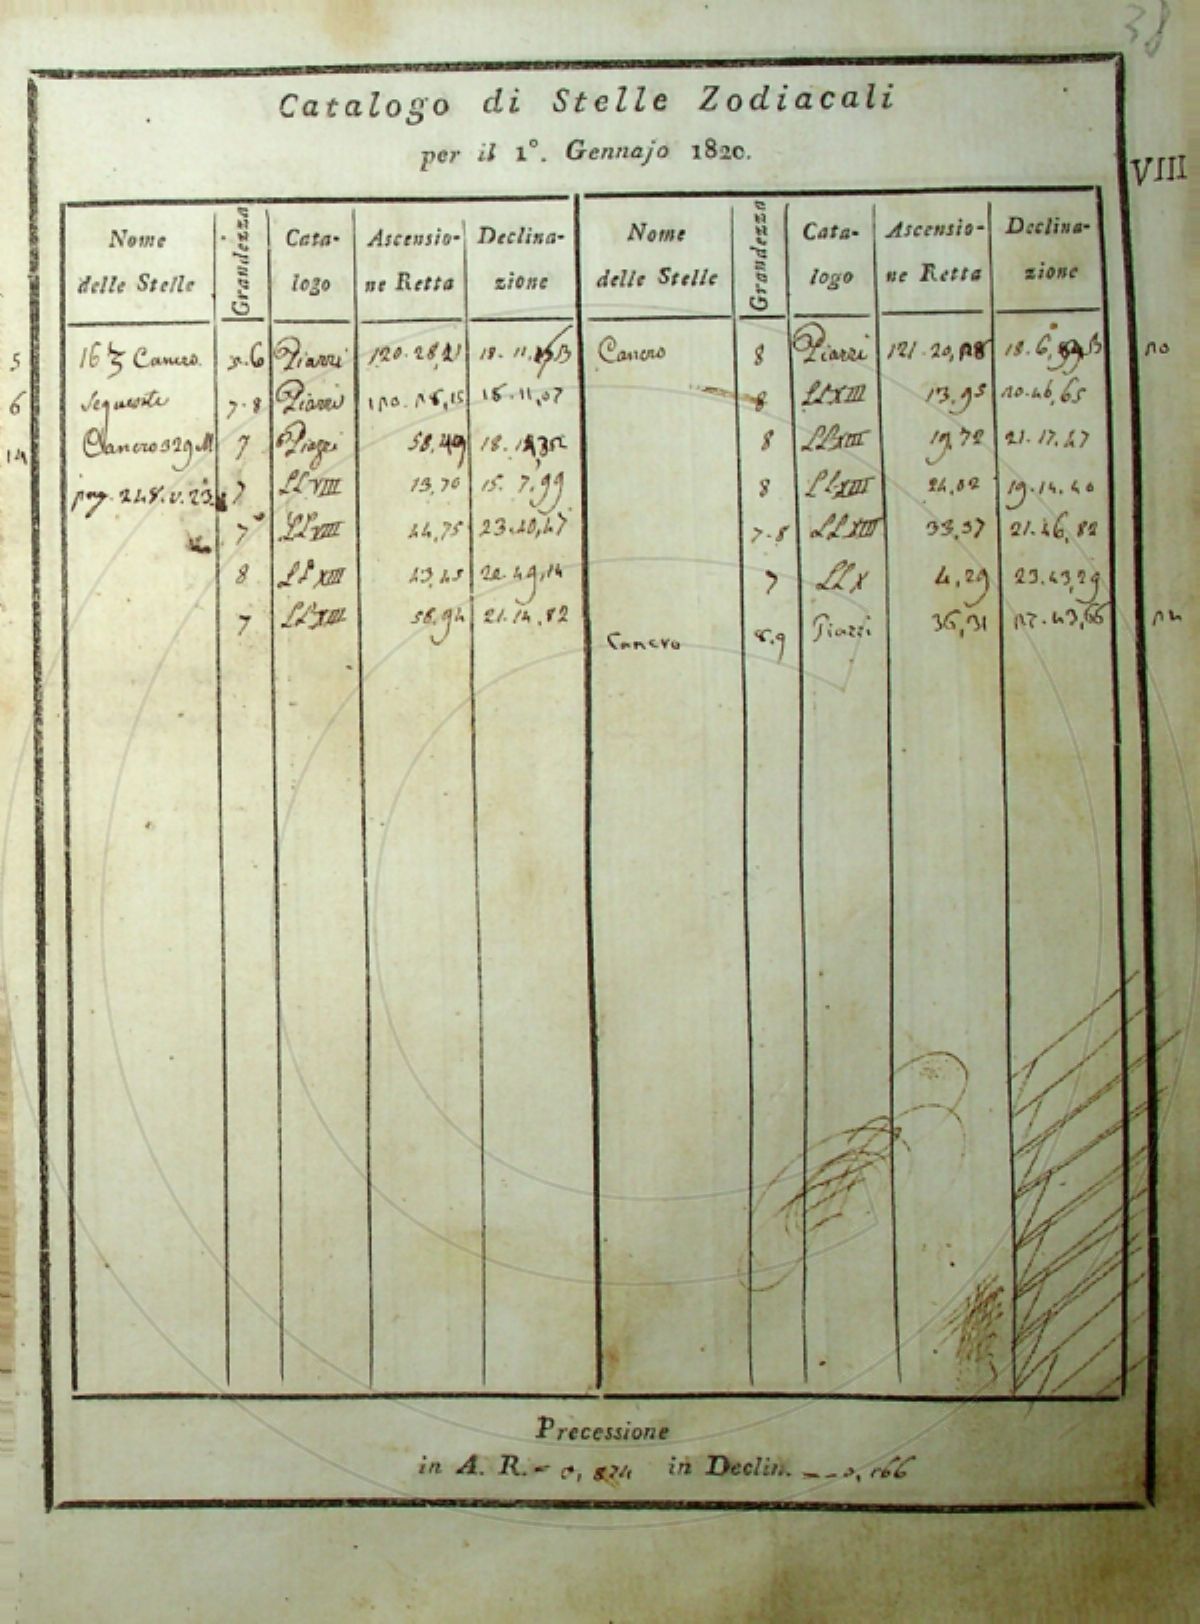 38
Catalogo di Stelle Zodiacali
per il 1°. Gennajo 1820.
VIII
Nome delle Stelle Grandezza Cata-logo Ascensio-ne Retta Declina-zione Nome delle Stelle Grandezza Cata-logo Ascensio-ne Retta Declina-zione
5 16 ζ Cancro 5.6 Piazzi 120.28,21 18.11, B
Cancro 8 Piazzi 121.20, 18.6, B 20
6 Seguente 7.8 Piazzi 18.11,07
8 LLXIII 13,95 20.46,65
14 Cancro 329 M 7 Piazzi 58, 18.
8 LLXIII 19,72 21.17,47
pag. 248.v.23 7 LLVIII 13,70 15.7,99
8 LLXIII 24,02 19.14,40
7 LLVIII 44,75 23.40,47
7.8 LLXIII 33,37 21.46,82
8 LLXIII 43,45 22.49,14
7 LLX 4,29 23.43,29
7 LLXIII 58,94 21.14,82
Cancro 8.9 Piazzi 36,31 43,66 24
Precessione
in A. R. = 0,874 in Declin. = - 0,166